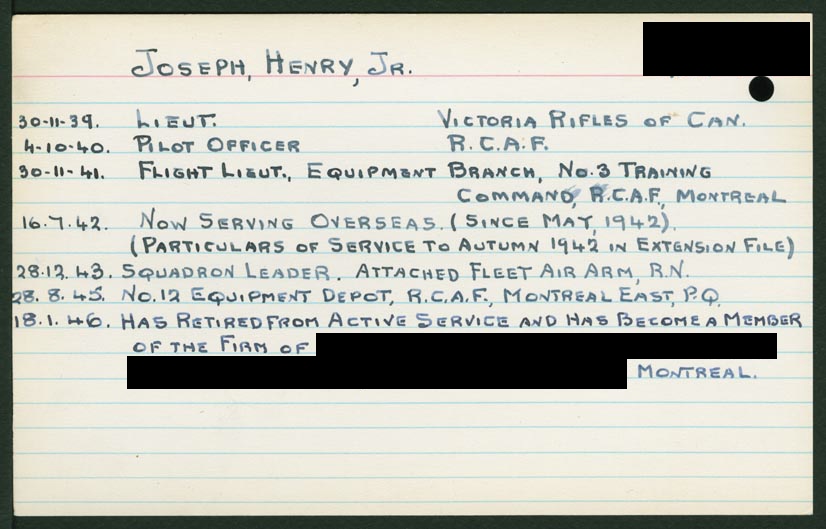 JOSEPH, HENRY, JR.
30-11-39. LIEUT. VICTORIA RIFLES OF CAN.
4-10-40. PILOT OFFICER R.C.A.F.
30-11-41. FLIGHT LIEUT., EQUIPMENT BRANCH, NO.3 TRAINING
COMMAND, R.C.A.F., MONTREAL
16.7.42. NOW SERVING OVERSEAS. (SINCE MAY, 1942).
(PARTICULARS OF SERVICE TO AUTUMN 1942 IN EXTENSION FILE)
28.12.43. SQUADRON LEADER. ATTACHED FLEET AIR ARM, R.N.
28.8.45. NO.12 EQUIPMENT DEPOT, R.C.A.F., MONTREAL EAST, P.Q.
18.1.46. HAS RETIRED FROM ACTIVE SERVICE AND HAS BECOME A MEMBER
OF THE FIRM OF
MONTREAL.